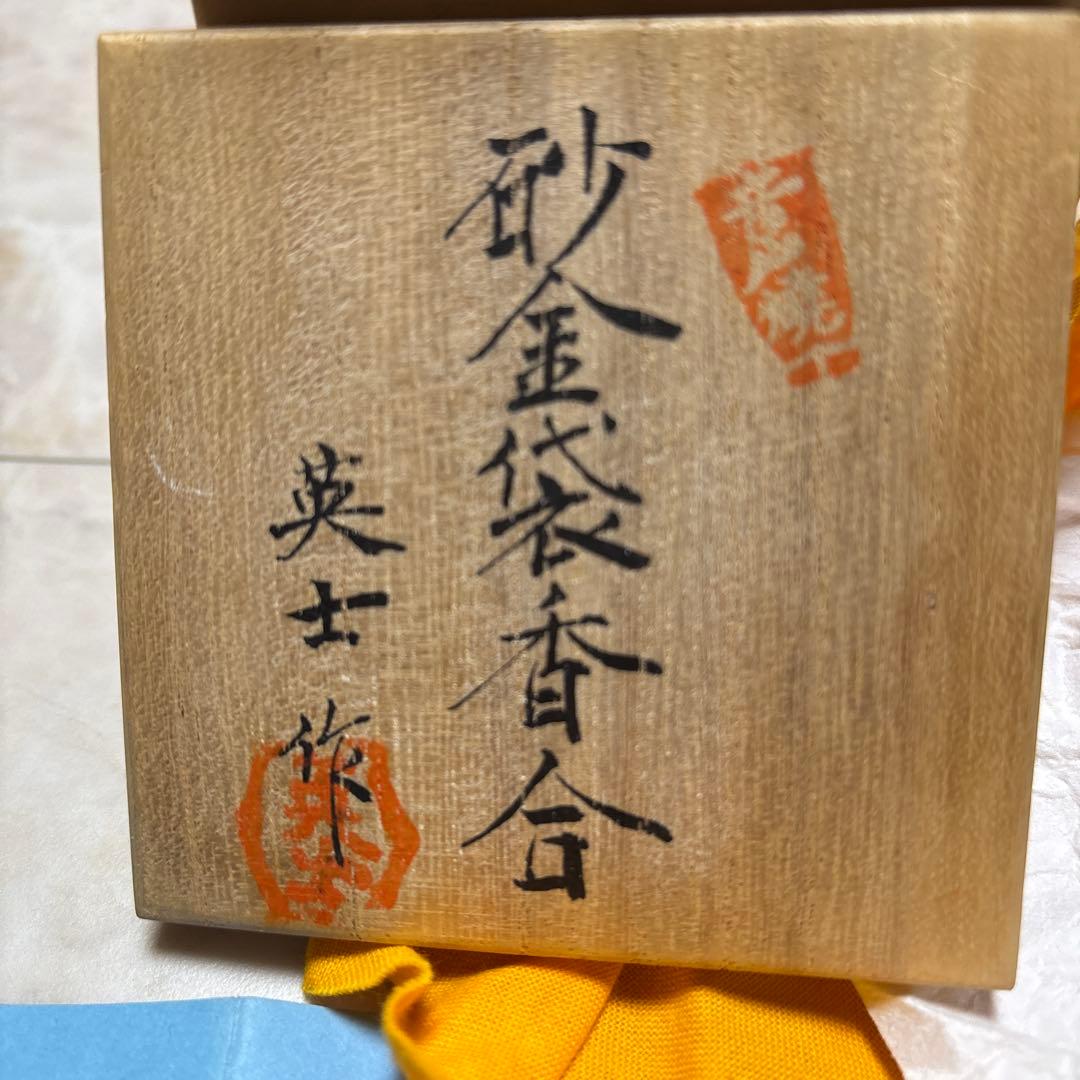 砂金袋香合
英士作